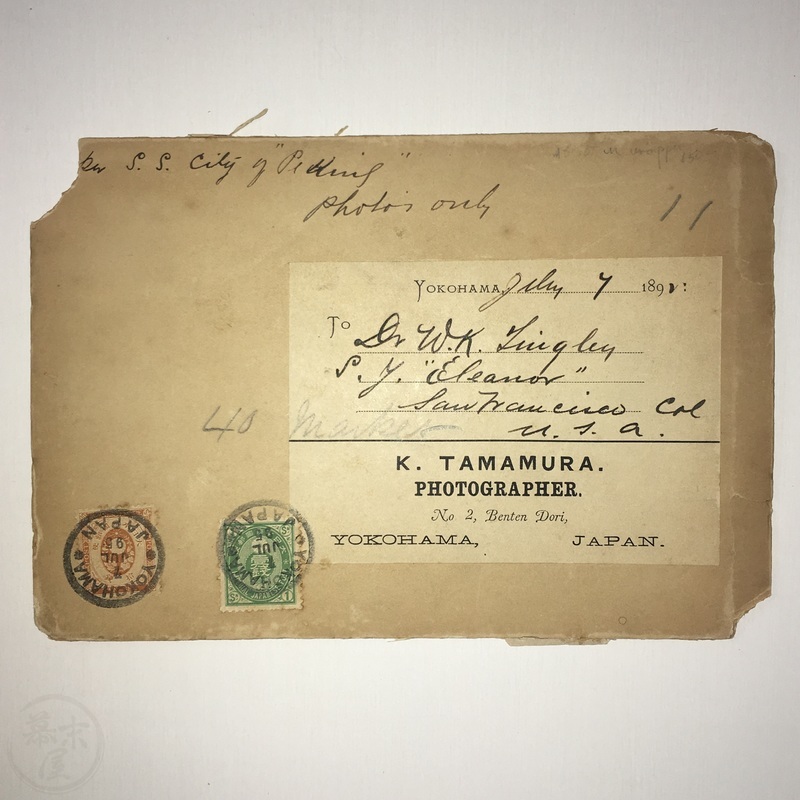 per S. S. City of "Peking"
photo's only
11
YOKOHAMA, July 7 189
To Dr W. K. Tingley
S. Y. "Eleanor"
San Francisco Cal
40 Market U. S. A.
K. TAMAMURA.
PHOTOGRAPHER.
No 2, Benten Dori,
YOKOHAMA, JAPAN.
YOKOHAMA JAPAN
7 JUL
YOKOHAMA JAPAN
JUL 95
幕末屋